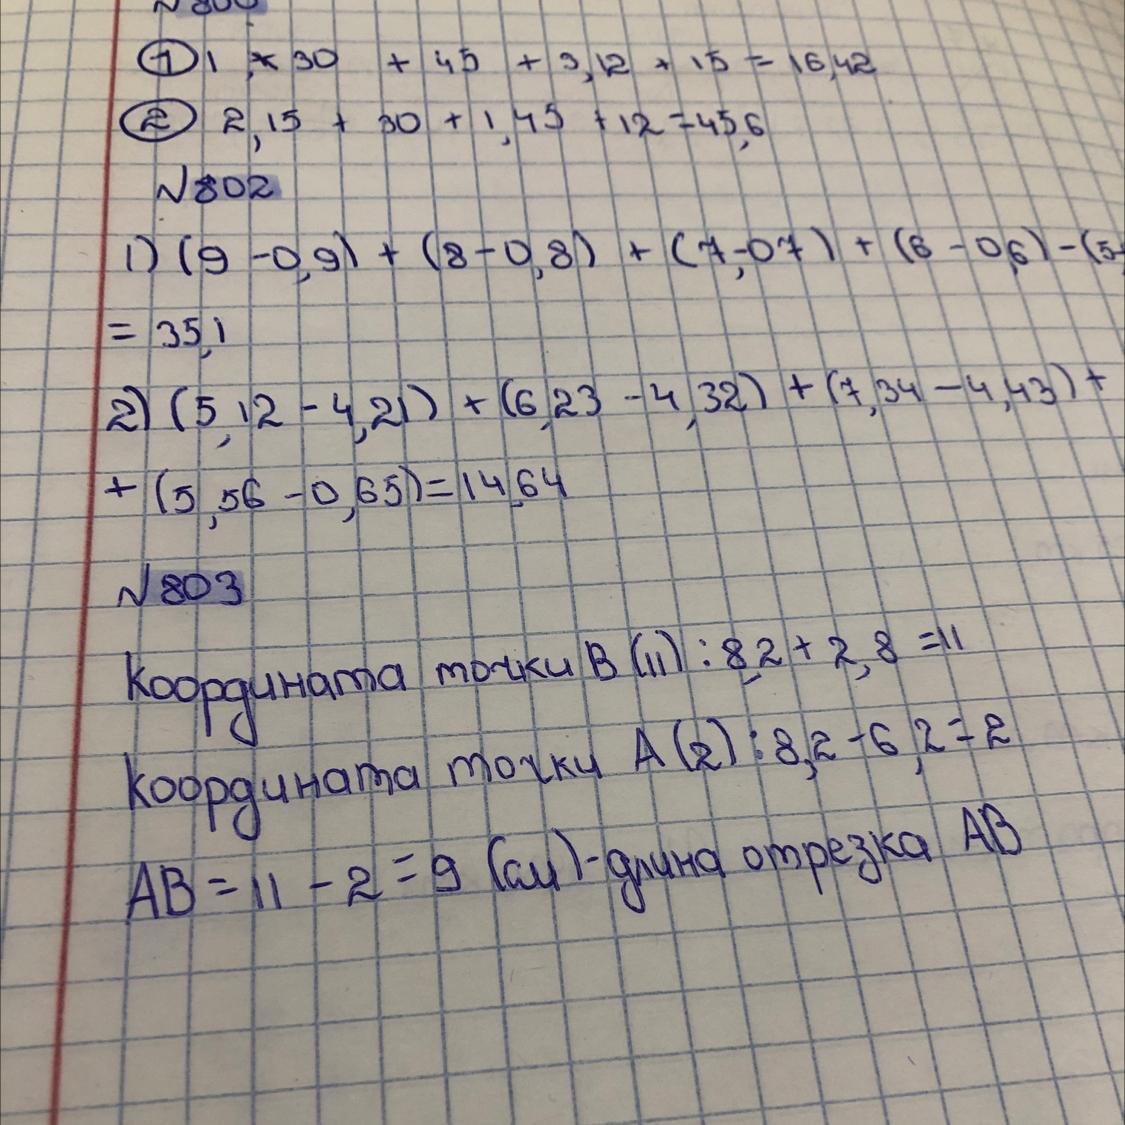 №800
① 1 × 30 + 45 + 3,12 + 15 = 16,42
② 2,15 + 30 + 1,45 + 12 = 45,6
№802
1) (9 - 0,9) + (8 - 0,8) + (7,-07) + (6 - 0,6) - (5-
= 35,1
2) (5,12 - 4,21) + (6,23 - 4,32) + (7,34 - 4,43) +
+ (5,56 - 0,65) = 14,64
№803
Координата точки B (11) : 8,2 + 2,8 = 11
Координата точки A (2) : 8,2 - 6,2 = 2
AB = 11 - 2 = 9 (см) - длина отрезка AB